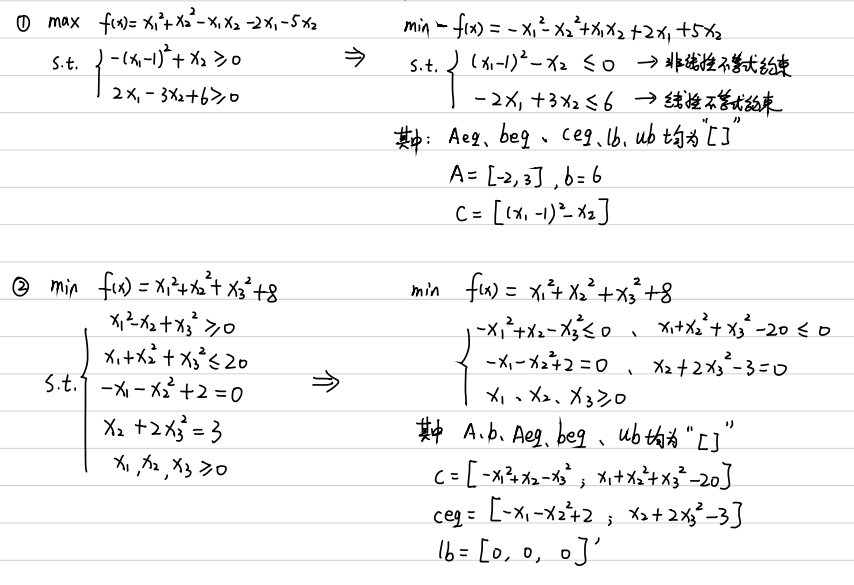 ① max f(x) = x₁² + x₂² - x₁x₂ - 2x₁ - 5x₂
s.t. { -(x₁-1)² + x₂ ≥ 0
2x₁ - 3x₂ + 6 ≥ 0
⇒
min -f(x) = -x₁² - x₂² + x₁x₂ + 2x₁ + 5x₂
s.t. { (x₁-1)² - x₂ ≤ 0 → 非线性不等式约束
-2x₁ + 3x₂ ≤ 6 → 线性不等式约束
其中: Aeq、beq、ceq、lb、ub 均为 "[]"
A = [-2,3], b = 6
C = [(x₁-1)² - x₂]
② min f(x) = x₁² + x₂² + x₃² + 8
s.t. { x₁² - x₂ + x₃² ≥ 0
x₁ + x₂² + x₃² ≤ 20
-x₁ - x₂² + 2 = 0
x₂ + 2x₃² = 3
x₁, x₂, x₃ ≥ 0
⇒
min f(x) = x₁² + x₂² + x₃² + 8
{ -x₁² + x₂ - x₃² ≤ 0 、 x₁ + x₂² + x₃² - 20 ≤ 0
-x₁ - x₂² + 2 = 0 、 x₂ + 2x₃² - 3 = 0
x₁、x₂、x₃ ≥ 0
其中 A、b、Aeq、beq、ub 均为 "[]"
C = [-x₁² + x₂ - x₃² ; x₁ + x₂² + x₃² - 20]
ceq = [-x₁ - x₂² + 2 ; x₂ + 2x₃² - 3]
lb = [0, 0, 0]'